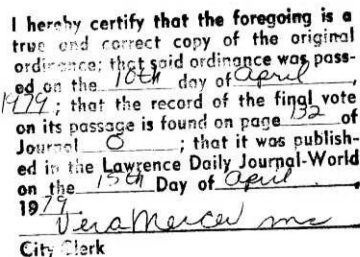 I hereby certify that the foregoing is a
true and correct copy of the original
ordinance; that said ordinance was pass-
ed on the 10th day of April
1979; that the record of the final vote
on its passage is found on page 132 of
Journal O; that it was publish-
ed in the Lawrence Daily Journal-World
on the 15th Day of April.
1979
Vera Mercer mc
City Clerk